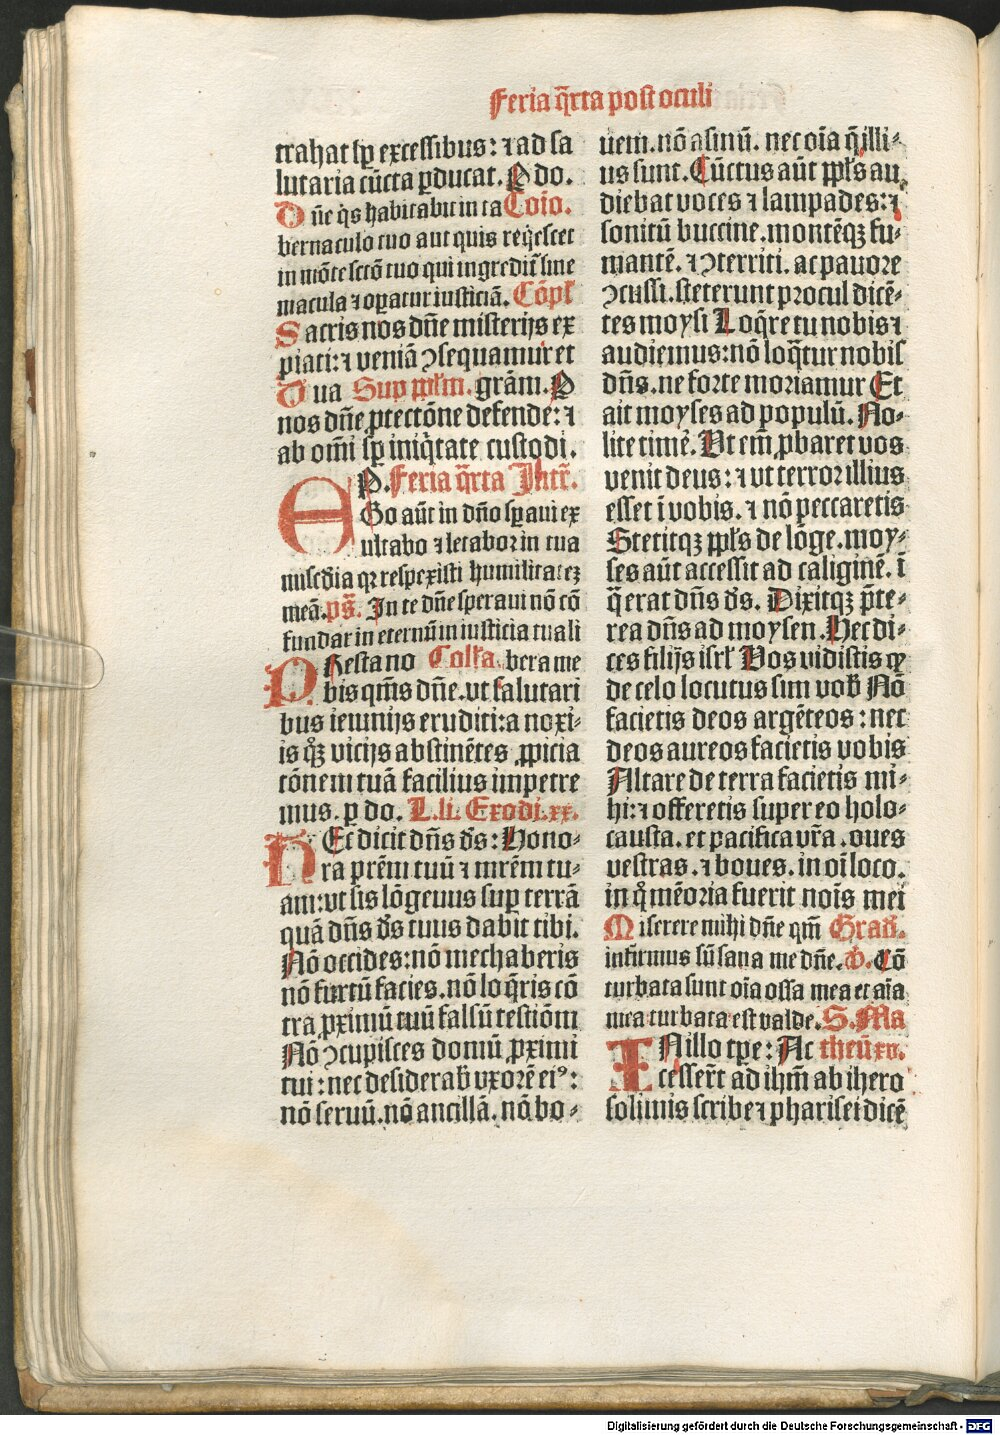 Feria q̄rta post oculi
trahat sꝑ excessibus: ⁊ ad sa
lutaria cūcta ꝑducat. P do.
Dn̄e q̇s habitabit in ta Coīo.
bernaculo tuo aut quis reqͥescet
in mōte sctō tuo qui ingredit᷑ sine
macula ⁊ oꝑatur iusticiā. Cōpl̄
Sacris nos dn̄e misterijs ex
piati: ⁊ veniā ꝯsequamur et
Tua Sup ppl̄m. grām. P
nos dn̄e ꝓtectōne defende: ⁊
ab om̄i sꝑ iniqͥtate custodi.
P. Feria q̄rta Intr̄.
EGo aūt in dn̄o sꝑaui ex
ultabo ⁊ letabor in tua
mis̄cdia qꝛ respexisti humilitatēꝫ
meā. ps̄. In te dn̄e speraui nō cō
fundar in eternū in iusticia tua li
PResta no Coll̄a. bera me
bis qm̄s dn̄e. vt salutari
bus ieiunijs eruditi: a noxi⸗
is qͦꝫ vicijs abstinētes ꝓpicia
tōnem tuā facilius impetre
mus. p do. L. li. Exodi. xx.
HEc dicit dn̄s ds̄: Hono⸗
ra prēm tuū ⁊ mrēm tu⸗
am: vt sis lōgeuus suꝑ terrā
quā dn̄s ds̄ tuus dabit tibi.
Nō occides: nō mechaberis
nō furtū facies. nō loq̄ris cō
tra ꝓximū tuū falsū testiōm
Nō ꝯcupisces domū ꝓximi
tui: nec desiderab̄ vxorē eiꝰ:
nō seruū. nō ancillā. nō bo⸗
uem. nō asinū. nec oīa q̄ illi⸗
us sunt. Cūctus aūt ppl̄s au
diebat voces ⁊ lampades: ⁊
sonitū buccine. montēqꝫ fu⸗
mantē. ⁊ ꝯterriti. ac pauore
ꝯcussi. steterunt procul dicē⸗
tes moysi Loq̄re tu nobis ⁊
audiemus: nō loq̄tur nobis
dn̄s. ne forte moriamur Et
ait moyses ad populū. No⸗
lite timē. Vt em̄ ꝓbaret vos
venit deus: ⁊ ut terror illius
esset ī vobis. ⁊ nō peccaretis
Stetitqꝫ ppl̄s de lōge. moy⸗
ses aūt accessit ad caliginē. ī
q̄ erat dn̄s ds̄. Dixitqꝫ p̄te⸗
rea dn̄s ad moysen. Hec di⸗
ces filijs isrl̄ Vos vidistis ꝙ
de celo locutus sim vob̄ Nō
facietis deos argēteos: nec
deos aureos facietis vobis
Altare de terra facietis mi⸗
hi: ⁊ offeretis super eo holo⸗
causta. et pacifica vr̄a. oues
vestras. ⁊ boues. in oī loco.
in qͦ mēoria fuerit nōis mei
Miserere mihi dn̄e qm̄ Grad̄.
infirmus sū sana me dn̄e. v̄. Cō
turbata sunt oīa ossa mea et aīa
mea turbata est valde. S. Ma
IN illo tꝑe: Ac theū xv.
cesser̄t ad ihm̄ ab ihero
solimis scribe ⁊ pharisei dicē
Digitalisierung gefördert durch die Deutsche Forschungsgemeinschaft - DFG